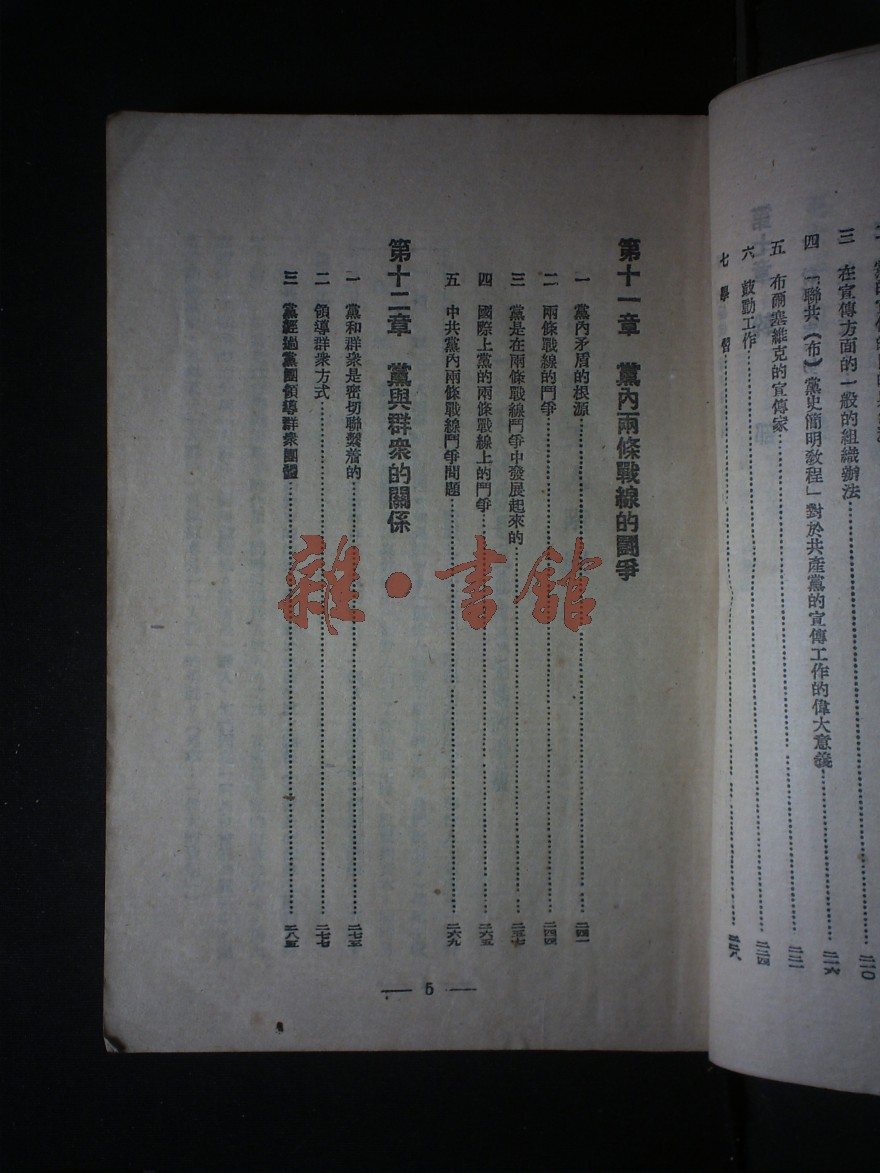 三 在宣傳方面的一般的組織辦法……二一〇
四 「聯共(布)黨史簡明教程」對於共產黨的宣傳工作的偉大意義……二一六
五 布爾塞維克的宣傳家……二二一
六 鼓動工作……二三四
七 學習……二三八
第十一章 黨內兩條戰線的鬪爭
一 黨內矛盾的根源……二四一
二 兩條戰線的鬥爭……二四四
三 黨是在兩條戰線鬥爭中發展起來的……二五七
四 國際上黨的兩條戰線上的鬥爭……二六五
五 中共黨內兩條戰線鬥爭問題……二六九
第十二章 黨與群衆的關係
一 黨和群衆是密切聯繫着的……二七五
二 領導群衆方式……二七七
三 黨經過黨團領導群衆團體……二八五
— 5 —
雜·書館